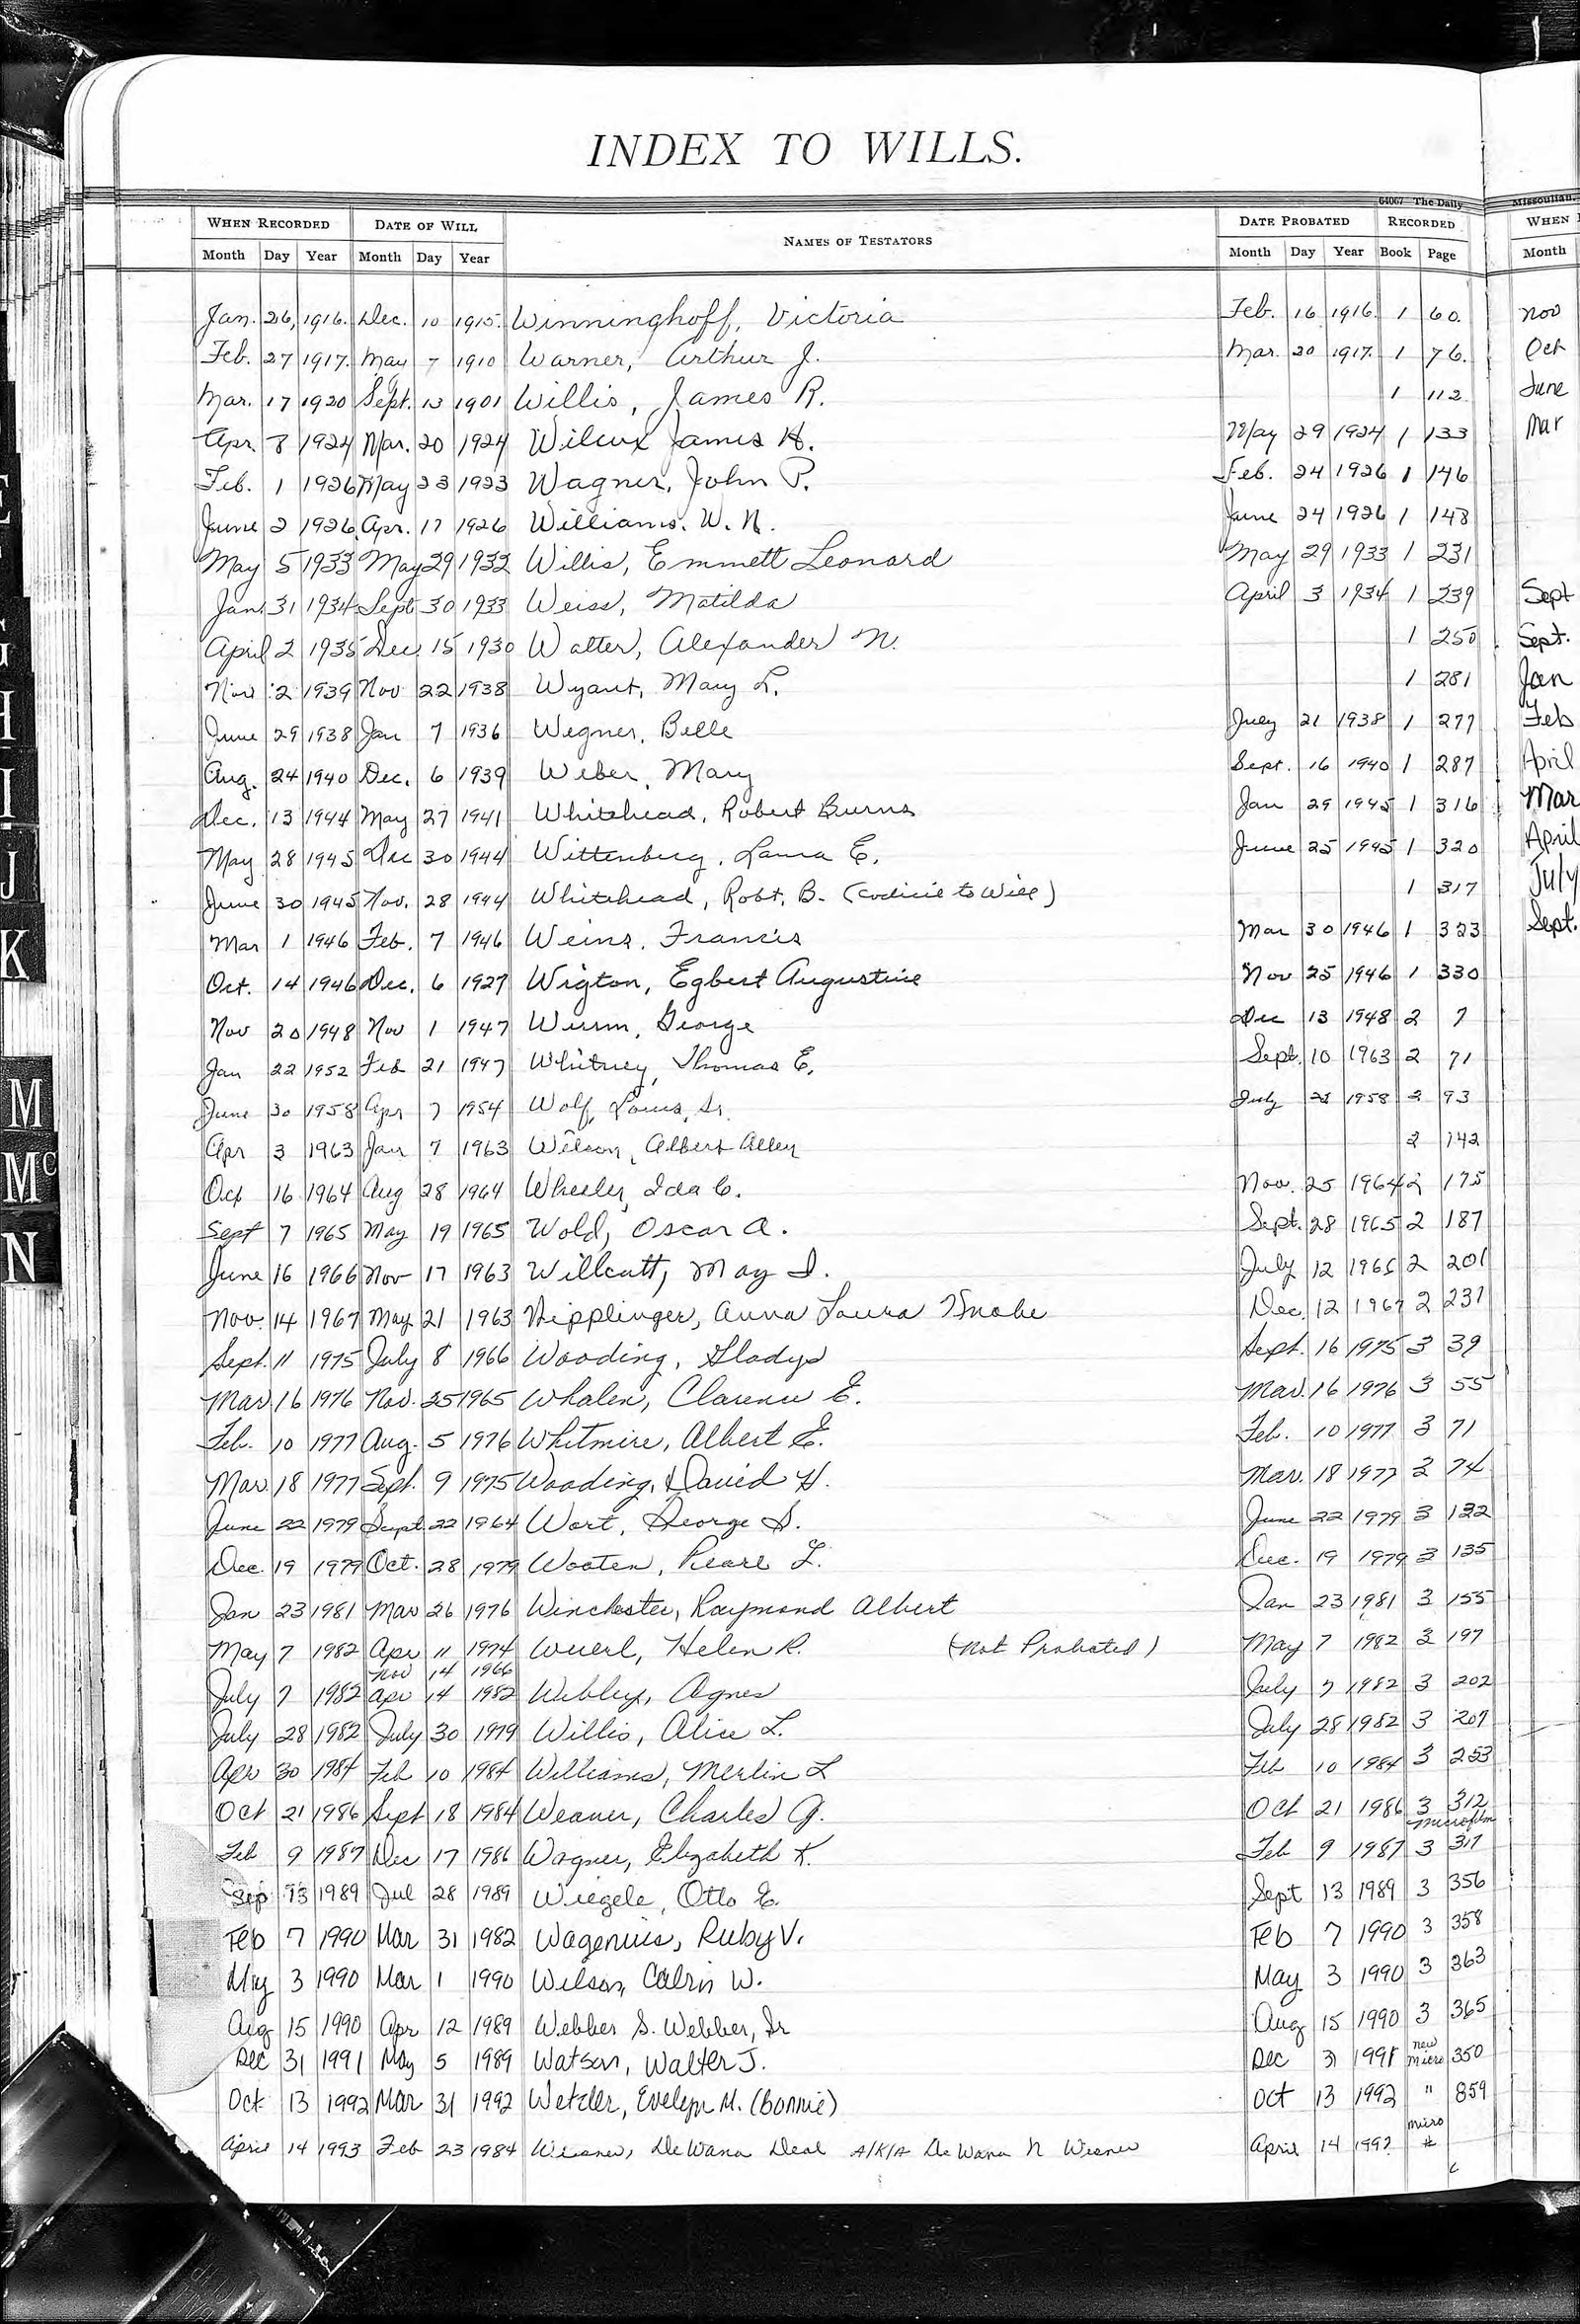 INDEX TO WILLS.
64067 The Daily Missoulian.
WHEN RECORDED DATE OF WILL NAMES OF TESTATORS DATE PROBATED RECORDED WHEN
Month Day Year Month Day Year Month Day Year Book Page Month
Jan. 26, 1916. Dec. 10 1915. Winninghoff, Victoria Feb. 16 1916. 1 60. Nov
Feb. 27 1917. May 7 1910 Warner, Arthur J. Mar. 20 1917. 1 76. Oct
Mar. 17 1920 Sept. 13 1901 Willis, James R. 1 112 June
Apr. 8 1924 Mar. 20 1924 Wilcox James H. May 29 1924 1 133 Mar
Feb. 1 1926 May 23 1923 Wagner, John P. Feb. 24 1926 1 146
June 2 1926 Apr. 17 1926 Williams. W. N. June 24 1926 1 148
May 5 1933 May 29 1932 Willis, Emmett Leonard May 29 1933 1 231
Jan. 31 1934 Sept 30 1933 Weiss, Matilda April 3 1934 1 239 Sept
April 2 1935 Dec. 15 1930 Walter, Alexander N. 1 250 Sept.
Nov 2 1939 Nov 22 1938 Wyant, Mary L. 1 281 Jan
June 29 1938 Jan 7 1936 Wegner, Belle July 21 1938 1 277 Feb
Aug. 24 1940 Dec. 6 1939 Weber, Mary Sept. 16 1940 1 287 April
Dec. 13 1944 May 27 1941 Whitehead, Robert Burns Jan 29 1945 1 316 Mar
May 28 1945 Dec 30 1944 Wittenberg, Laura E. June 25 1945 1 320 April
June 30 1945 Nov. 28 1944 Whitehead, Robt. B. (Codicil to Will) 1 317 July
Mar 1 1946 Feb. 7 1946 Weins, Francis Mar 30 1946 1 323 Sept.
Oct. 14 1946 Dec. 6 1927 Wigton, Egbert Augustine Nov 25 1946 1 330
Nov 20 1948 Nov 1 1947 Wurm, George Dec 13 1948 2 7
Jan 22 1952 Feb 21 1947 Whitney, Thomas E. Sept. 10 1963 2 71
June 30 1958 Apr 7 1954 Wolf, Louis, Sr. July 22 1958 2 93
Apr 3 1963 Jan 7 1963 Wilson, Albert Allen 2 142
Oct 16 1964 Aug 28 1964 Wheeler, Ida C. Nov. 25 1964 2 175
Sept 7 1965 May 19 1965 Wold, Oscar A. Sept. 28 1965 2 187
June 16 1966 Nov 17 1963 Willcutt, May I. July 12 1966 2 201
Nov. 14 1967 May 21 1963 Wipplinger, Anna Laura Knobe Dec. 12 1967 2 231
Sept. 11 1975 July 8 1966 Wooding, Gladys Sept. 16 1975 3 39
Mar. 16 1976 Nov. 25 1965 Whalen, Clarence E. Mar. 16 1976 3 55
Feb. 10 1977 Aug. 5 1976 Whitmire, Albert E. Feb. 10 1977 3 71
Mar. 18 1977 Sept. 9 1975 Wooding, David H. Mar. 18 1977 3 74
June 22 1979 Sept. 22 1964 Wort, George S. June 22 1979 3 122
Dec. 19 1979 Oct. 28 1979 Wooten, Pearl L. Dec. 19 1979 3 135
Jan 23 1981 Mar 26 1976 Winchester, Raymond Albert Jan 23 1981 3 155
May 7 1982 Apr 11 1974 Wuerl, Helen R. (Not Probated) May 7 1982 3 197
Nov 14 1966
July 7 1982 Apr 14 1982 Webley, Agnes July 7 1982 3 202
July 28 1982 July 30 1979 Willis, Alice L. July 28 1982 3 207
Apr 30 1984 Feb 10 1984 Williams, Merlin L Feb 10 1984 3 253
Oct 21 1986 Sept 18 1984 Weaver, Charles G. Oct 21 1986 3 312
microfilm
Feb 9 1987 Dec 17 1986 Wagner, Elizabeth K. Feb 9 1987 3 317
Sep 13 1989 Jul 28 1989 Wiegele, Otto E. Sept 13 1989 3 356
Feb 7 1990 Mar 31 1982 Wagenius, Ruby V. Feb 7 1990 3 358
May 3 1990 Mar 1 1990 Wilson, Calvin W. May 3 1990 3 363
Aug 15 1990 Apr 12 1989 Webber S. Webber, Jr Aug 15 1990 3 365
Dec 31 1991 May 5 1989 Watson, Walter J. Dec 31 1991 new micro 350
Oct 13 1992 Mar 31 1992 Wetzler, Evelyn M. (Bonnie) Oct 13 1992 " 859
April 14 1993 Feb 23 1984 Wisner, DeWana Deal A/K/A DeWana N Wisner April 14 1992 micro #
E
G
H
I
J
K
M
Mc
N